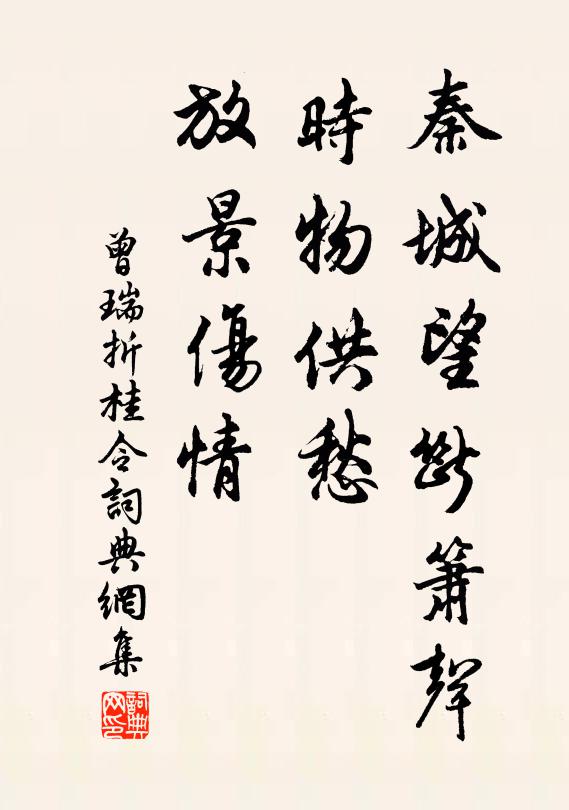 秦城望斷簫聲
時物供愁
放景傷情
曾瑞折桂令詞典網集
詞典网印